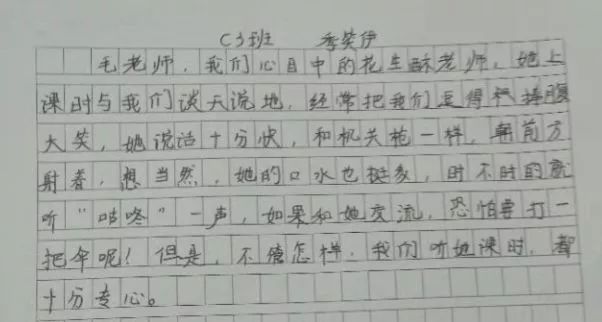 C3班 季笑伊
毛老师，我们心目中的花生酥老师，她上
课时与我们谈天说地，经常把我们逗得捧腹
大笑，她说话十分快，和机关枪一样，朝前方
射着，想当然，她的口水也挺多，时不时的就
听“咕咚”一声，如果和她交流，恐怕要打一
把伞呢！但是，不管怎样，我们听她课时，都
十分专心。